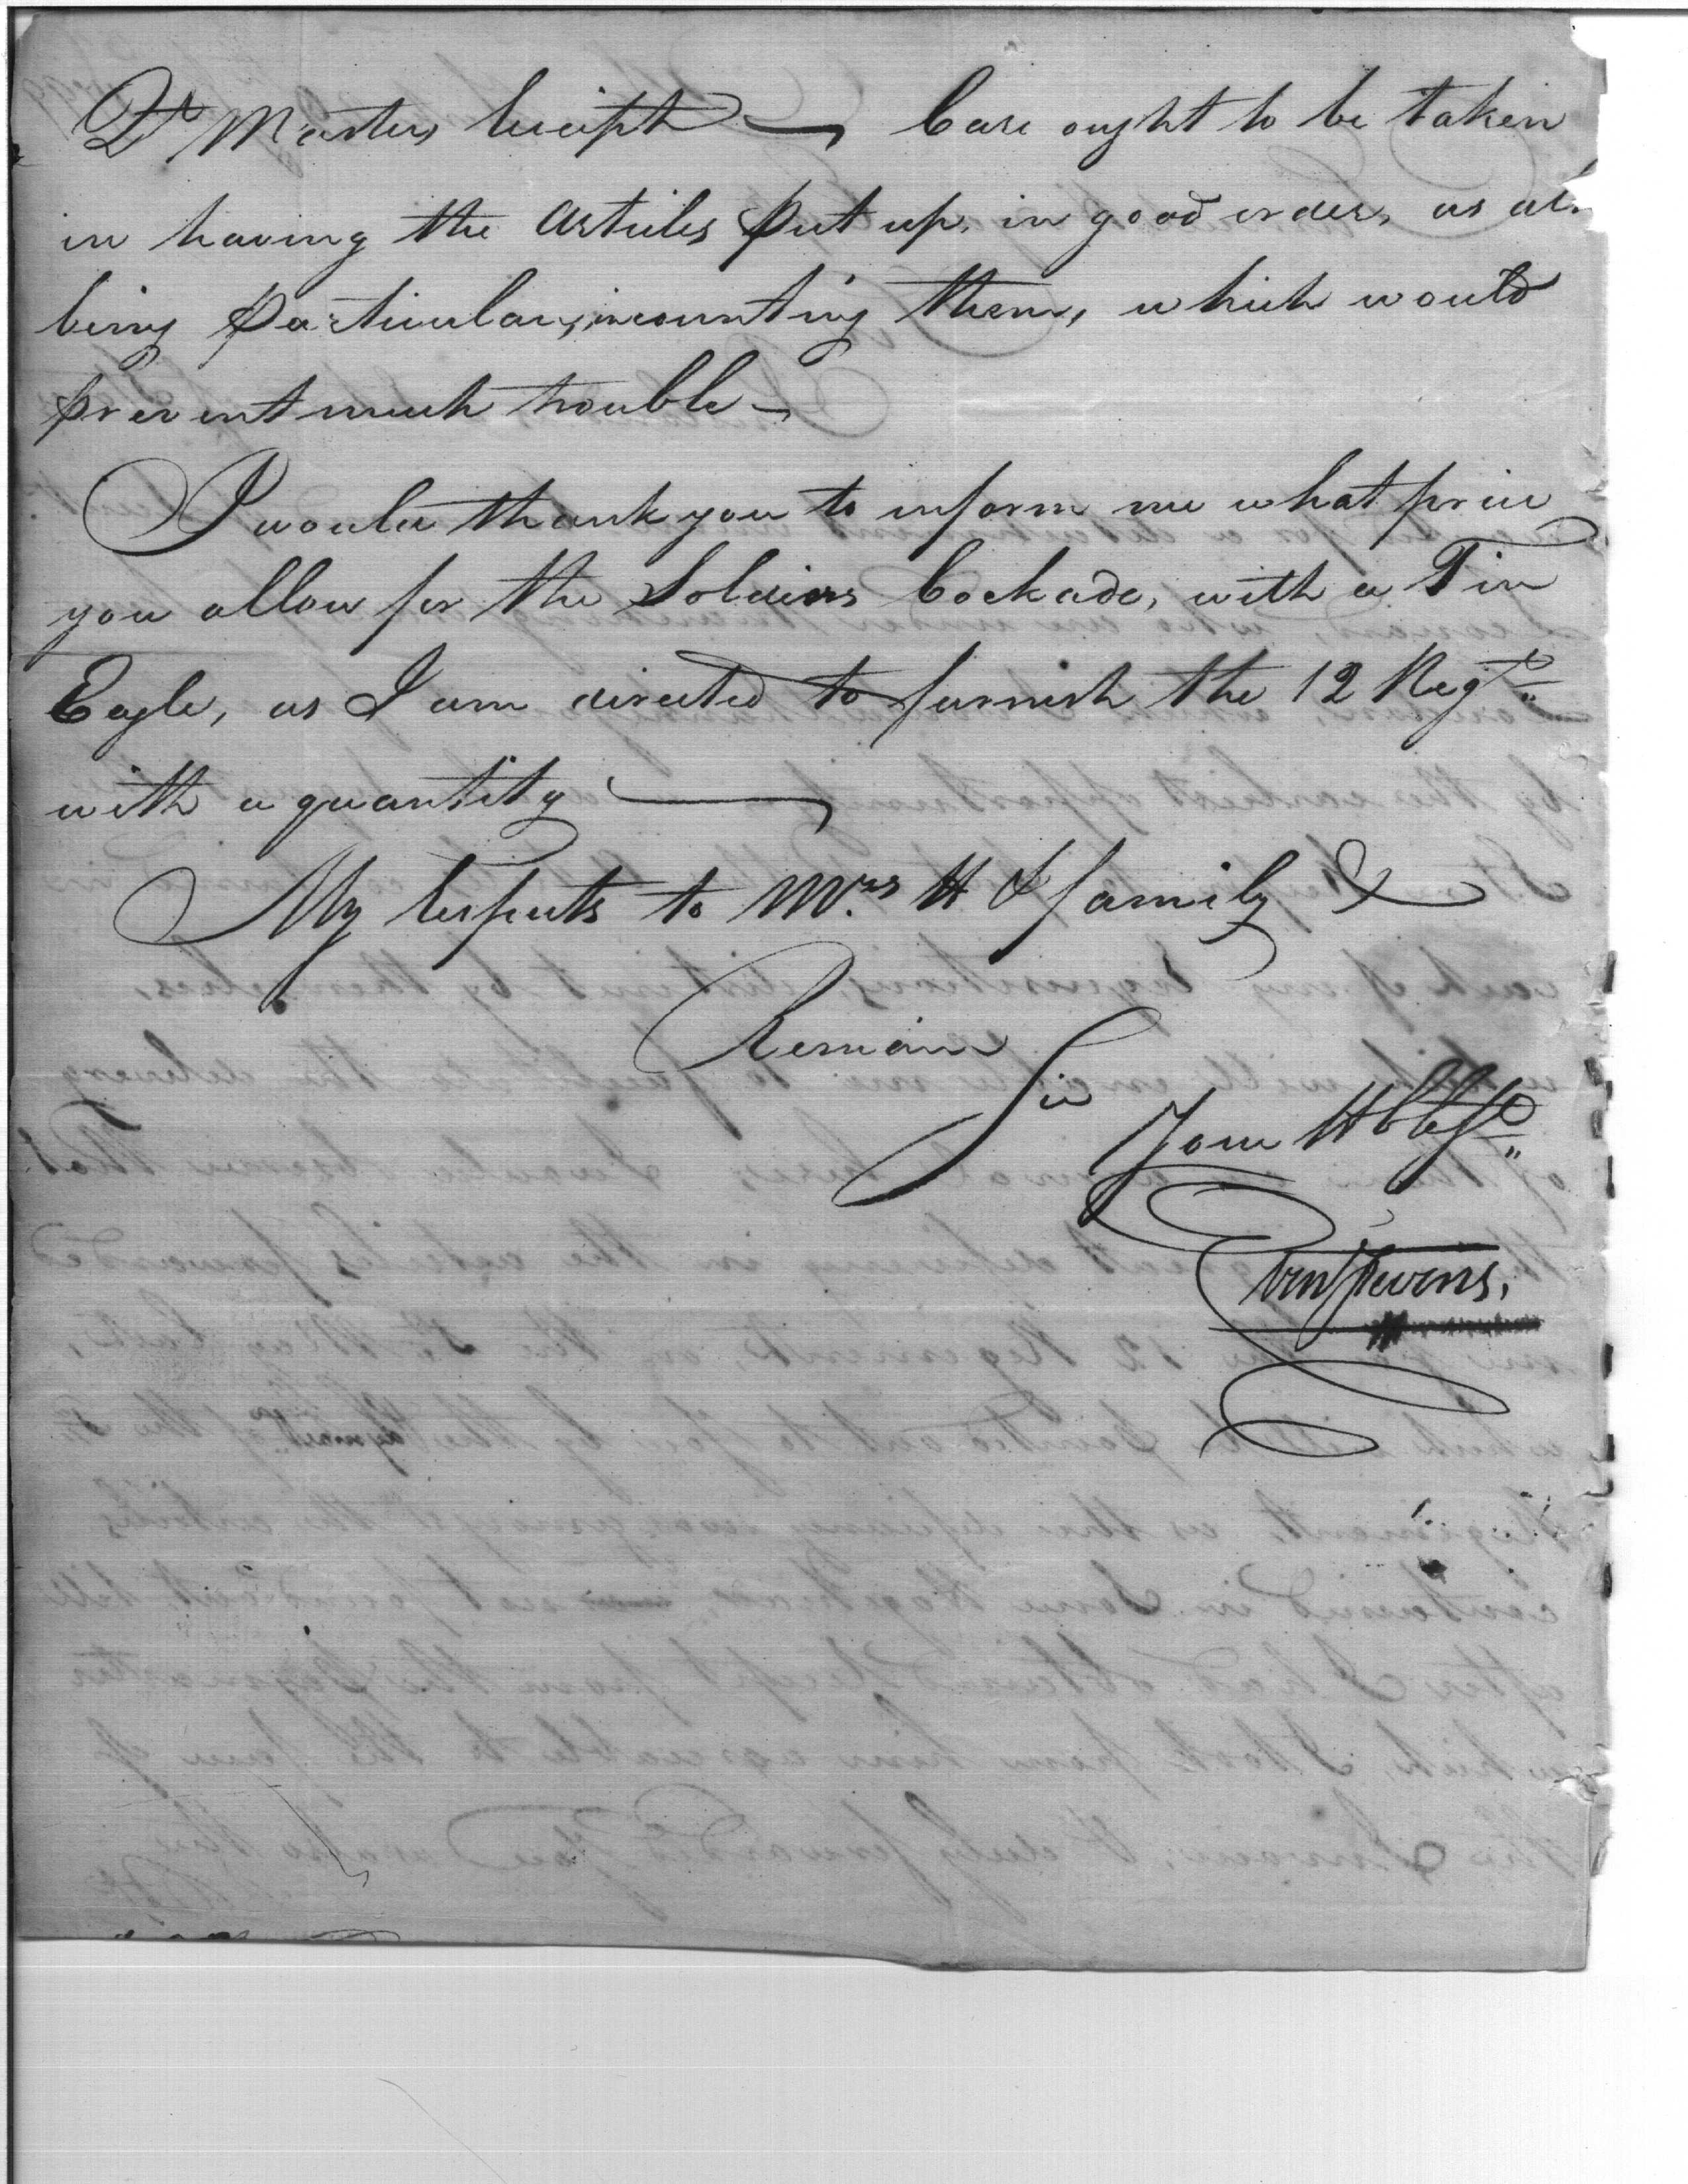 Qr Masters receipt — Care ought to be taken
in having the articles put up, in good order, as al
being particular, in counting them, which would
prevent much trouble —
I would thank you to inform me what price
you allow for the Soldiers Cockade, with a Tin
Eagle, as I am directed to furnish the 12 Regt
with a quantity —
My respects to Mrs H & family &
Remain
Sir
Your Hble St
Ebenr Stevens.